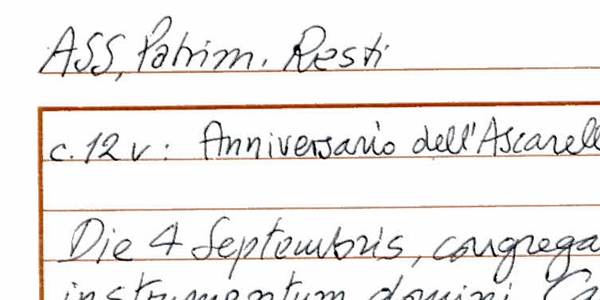 ASS, Patrim. Resti
c. 12 v: Anniversario dell'Ascarell
Die 4 Septembris, congrega
instrumentum domini